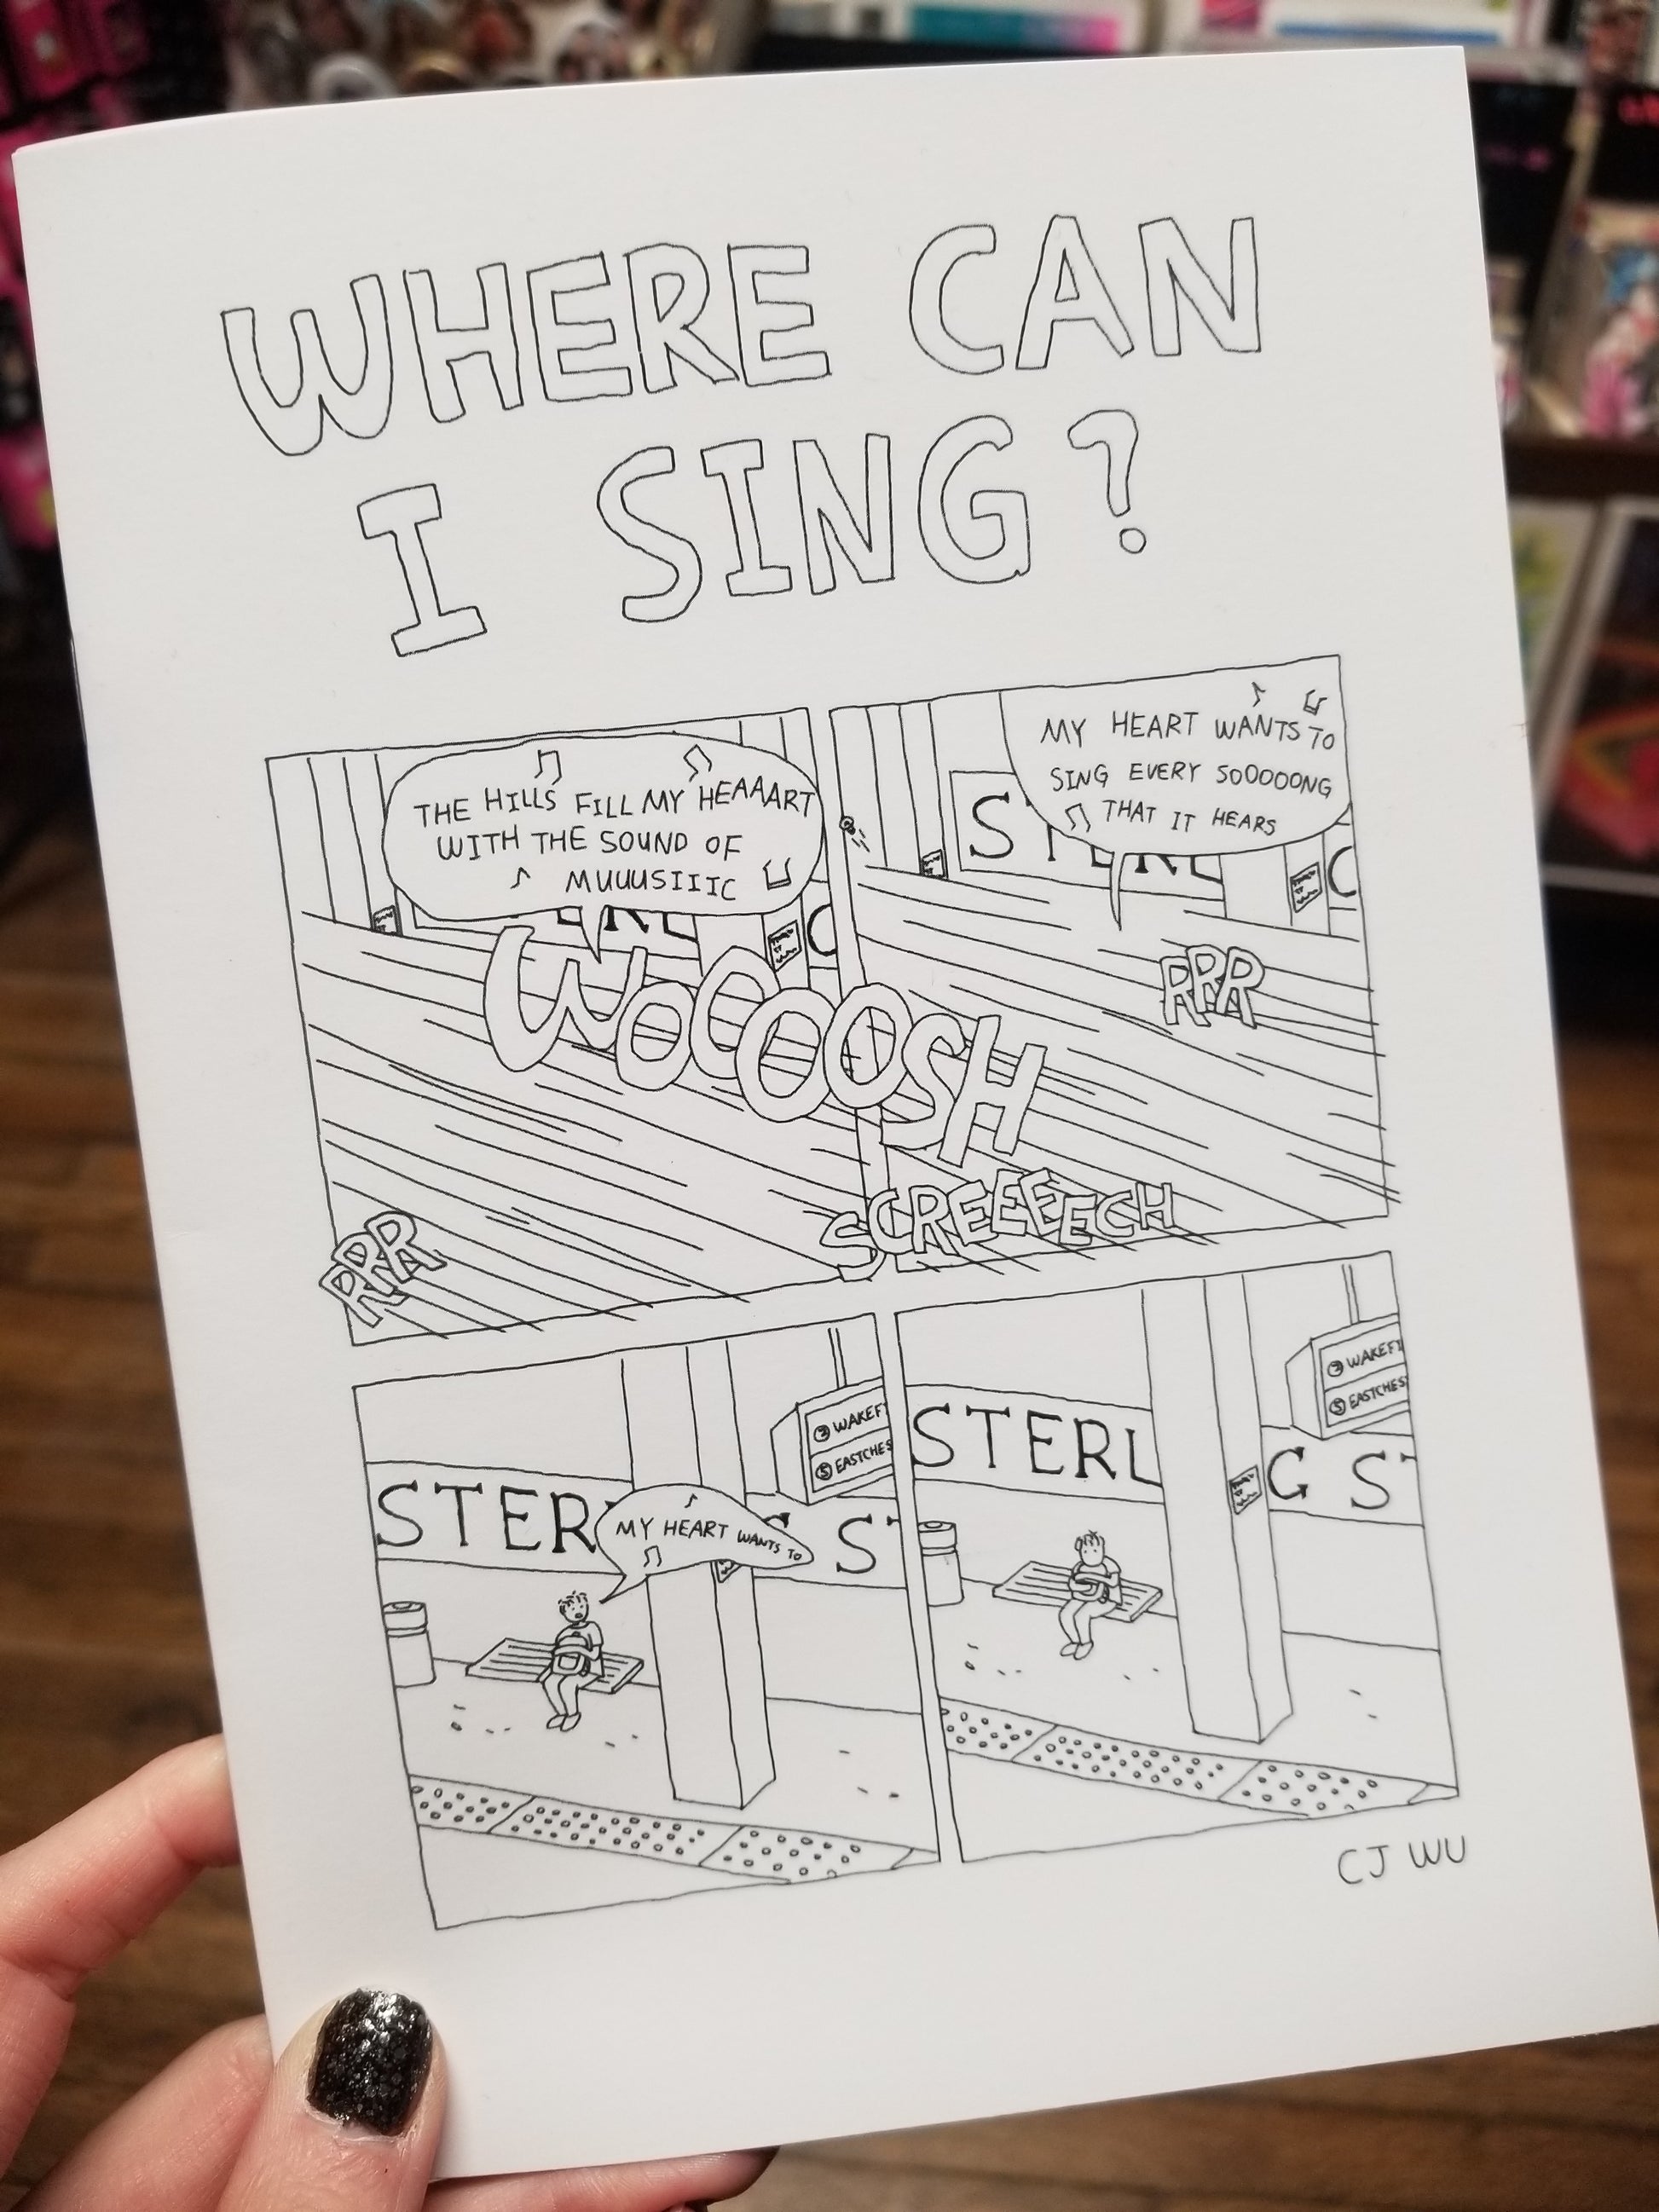 WHERE CAN
I SING?
THE HILLS FILL MY HEAAART
WITH THE SOUND OF
MUUUSIIIC
WOOOOSH
RRR
MY HEART WANTS TO
SING EVERY SOOOOONG
THAT IT HEARS
S
C
C
RRR
SCREEEEECH
STER
S
MY HEART WANTS TO
② WAKEF
⑤ EASTCHES
STERL
G S
② WAKEFI
⑤ EASTCHES
CJ WU